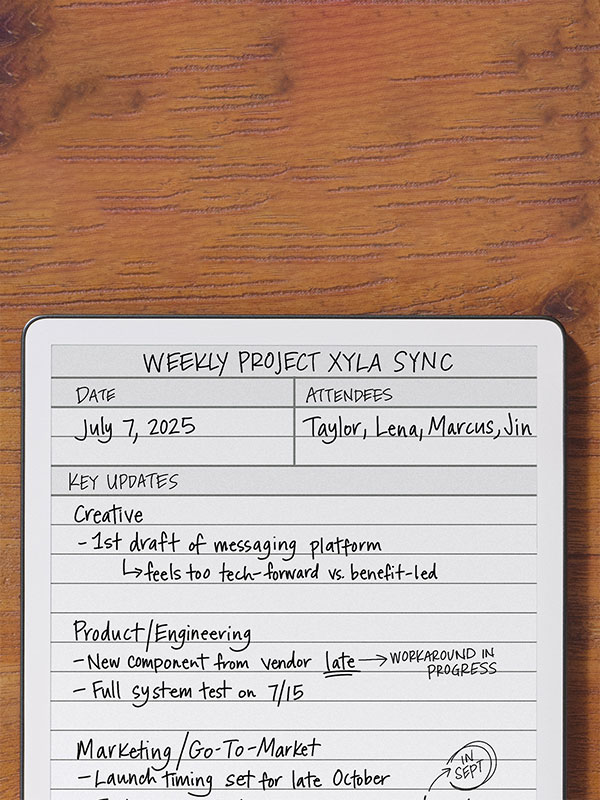 WEEKLY PROJECT XYLA SYNC
DATE
ATTENDEES
July 7, 2025
Taylor, Lena, Marcus, Jin
KEY UPDATES
Creative
- 1st draft of messaging platform
↳ feels too tech-forward vs. benefit-led
Product/Engineering
- New component from vendor late → WORKAROUND IN
PROGRESS
- Full system test on 7/15
Marketing/Go-To-Market
- Launch timing set for late October
IN
SEPT